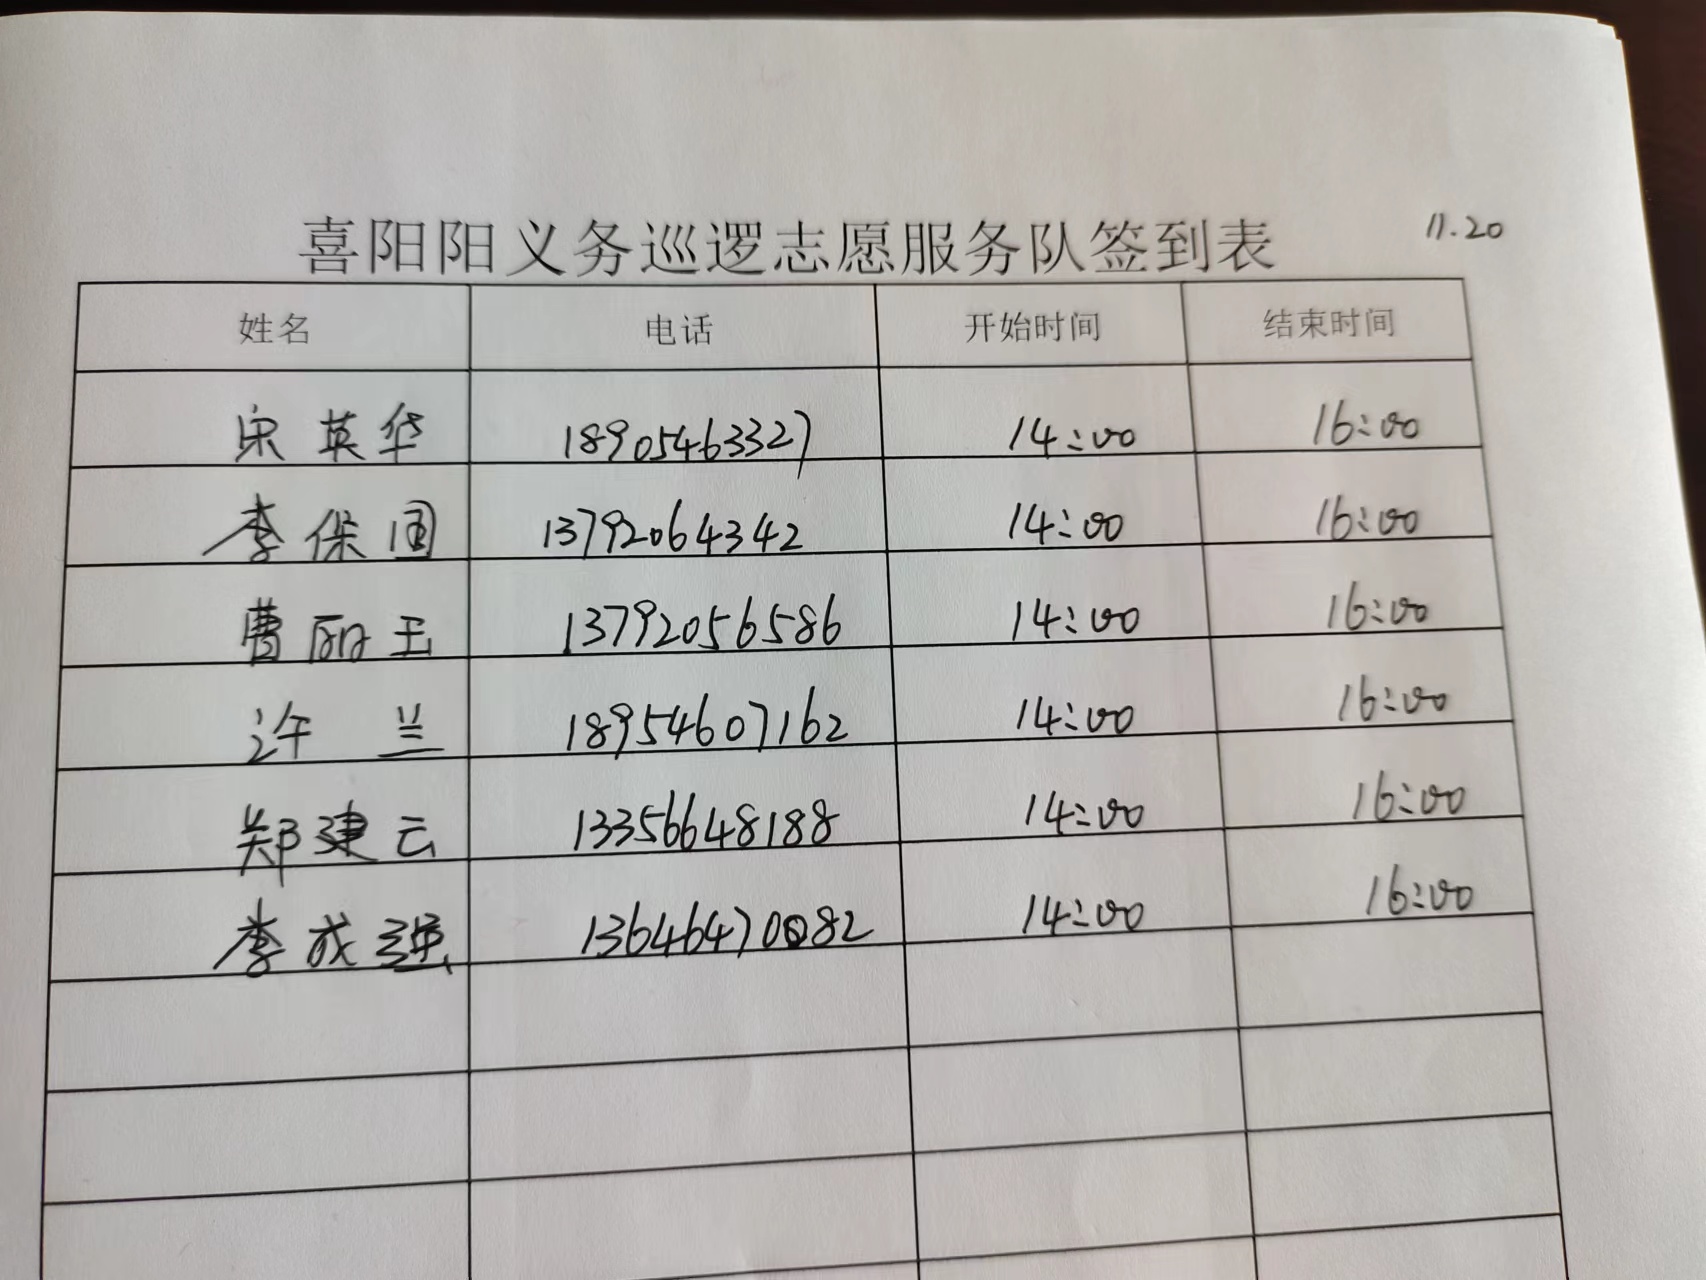 喜阳阳义务巡逻志愿服务队签到表 11.20
姓名 电话 开始时间 结束时间
宋英华 18905463327 14:00 16:00
李保国 13792064342 14:00 16:00
曹丽玉 13792056586 14:00 16:00
许兰 18954607162 14:00 16:00
郑建云 13356648188 14:00 16:00
李成强 13646470082 14:00 16:00